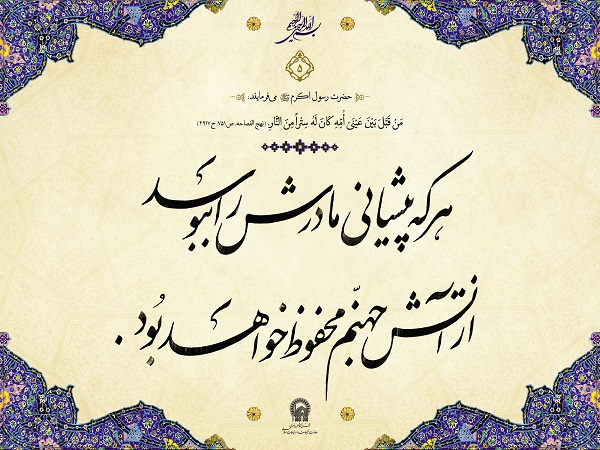 بسم الله الرحمن الرحیم
۵
حضرت رسول اکرم ﷺ می‌فرمایند:
مَنْ قَبَّلَ بَیْنَ عَیْنَیْ أُمِّهِ کَانَ لَهُ سِتْراً مِنَ النَّارِ. (نهج الفصاحه، ص۷۵۱، ح۲۹۱۷)
هر که پیشانی مادرش را ببوسد
از آتش جهنّم محفوظ خواهد بُود.